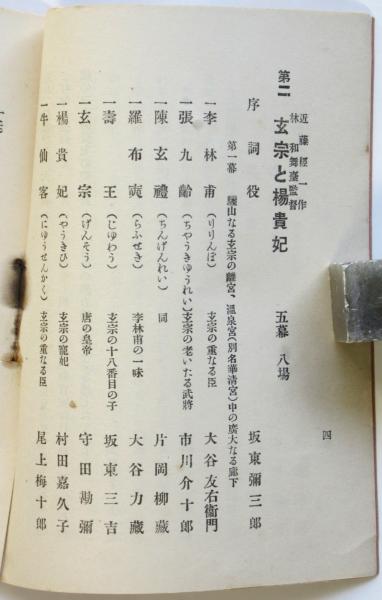 四
第二 玄宗と楊貴妃 五幕 八場
近藤經一作
林和舞臺監督
序詞役 坂東彌三郎
第一幕 驪山なる玄宗の離宮、溫泉宮(別名華清宮)中の廣大なる廊下
一李林甫(りりんぽ) 玄宗の重なる臣 大谷友右衞門
一張九齡(ちやうきゆうれい)玄宗の老いたる武將 市川介十郎
一陳玄禮(ちんげんれい) 同 片岡柳藏
一羅布奭(らふせき) 李林甫の一味 大谷力藏
一壽王(じゆわう) 玄宗の十八番目の子 坂東三吉
一玄宗(げんそう) 唐の皇帝 守田勘彌
一楊貴妃(やうきひ) 玄宗の寵妃 村田嘉久子
一牛仙客(にゆうせんかく) 玄宗の重なる臣 尾上梅十郎